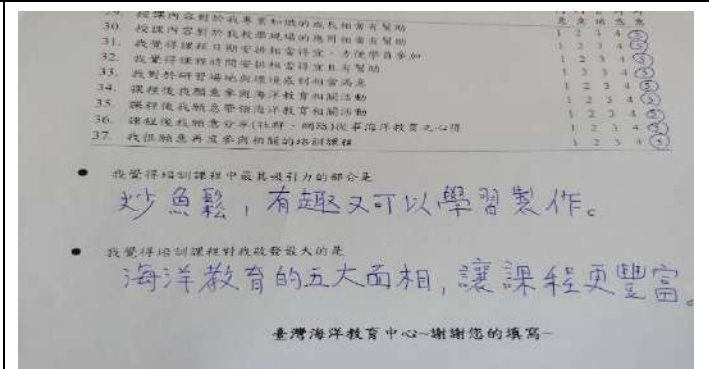 29. 授課內容對於我專業知識的成長相當有幫助 1 2 3 4 5
30. 授課內容對於我教學現場的應用相當有幫助 1 2 3 4 5
31. 我覺得課程日期安排相當得宜、方便學員參加 1 2 3 4 5
32. 我覺得課程時間安排相當得宜且有幫助 1 2 3 4 5
33. 我對於研習場地與環境感到相當滿意 1 2 3 4 5
34. 課程後我願意參與海洋教育相關活動 1 2 3 4 5
35. 課程後我願意帶領海洋教育相關活動 1 2 3 4 5
36. 課程後我願意分享(社群、網路)從事海洋教育之心得 1 2 3 4 5
37. 我很願意再度參與相關的培訓課程 1 2 3 4 5
● 我覺得培訓課程中最具吸引力的部分是
炒魚鬆，有趣又可以學習製作。
● 我覺得培訓課程對我啟發最大的是
海洋教育的五大面相，讓課程更豐富。
臺灣海洋教育中心~謝謝您的填寫~